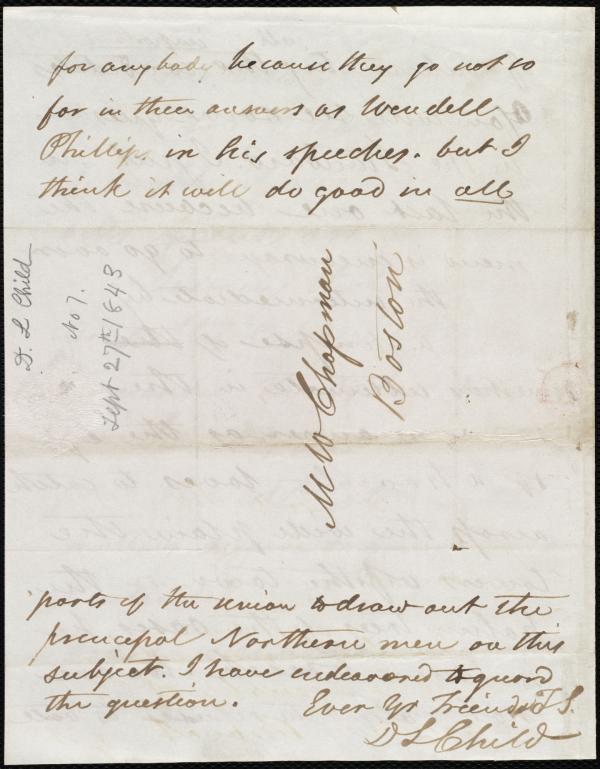 for anybody because they go not so
far in their answers as Wendell
Phillips in his speeches. but I
think it will do good in all
D. L Child
No 7.
Sept 27th 1843
M W Chapman
Boston
parts of the union to draw out the
principal Northern men on this
subject. I have endeavored to guard
the question. Ever Yr Friend
D L Child